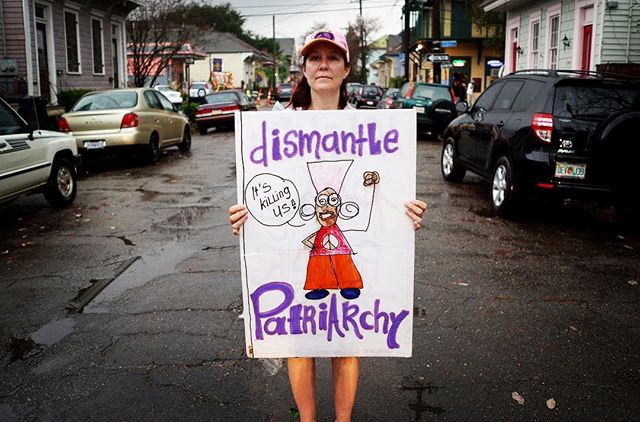 dismantle
It's
killing
us!
PatRiARchy